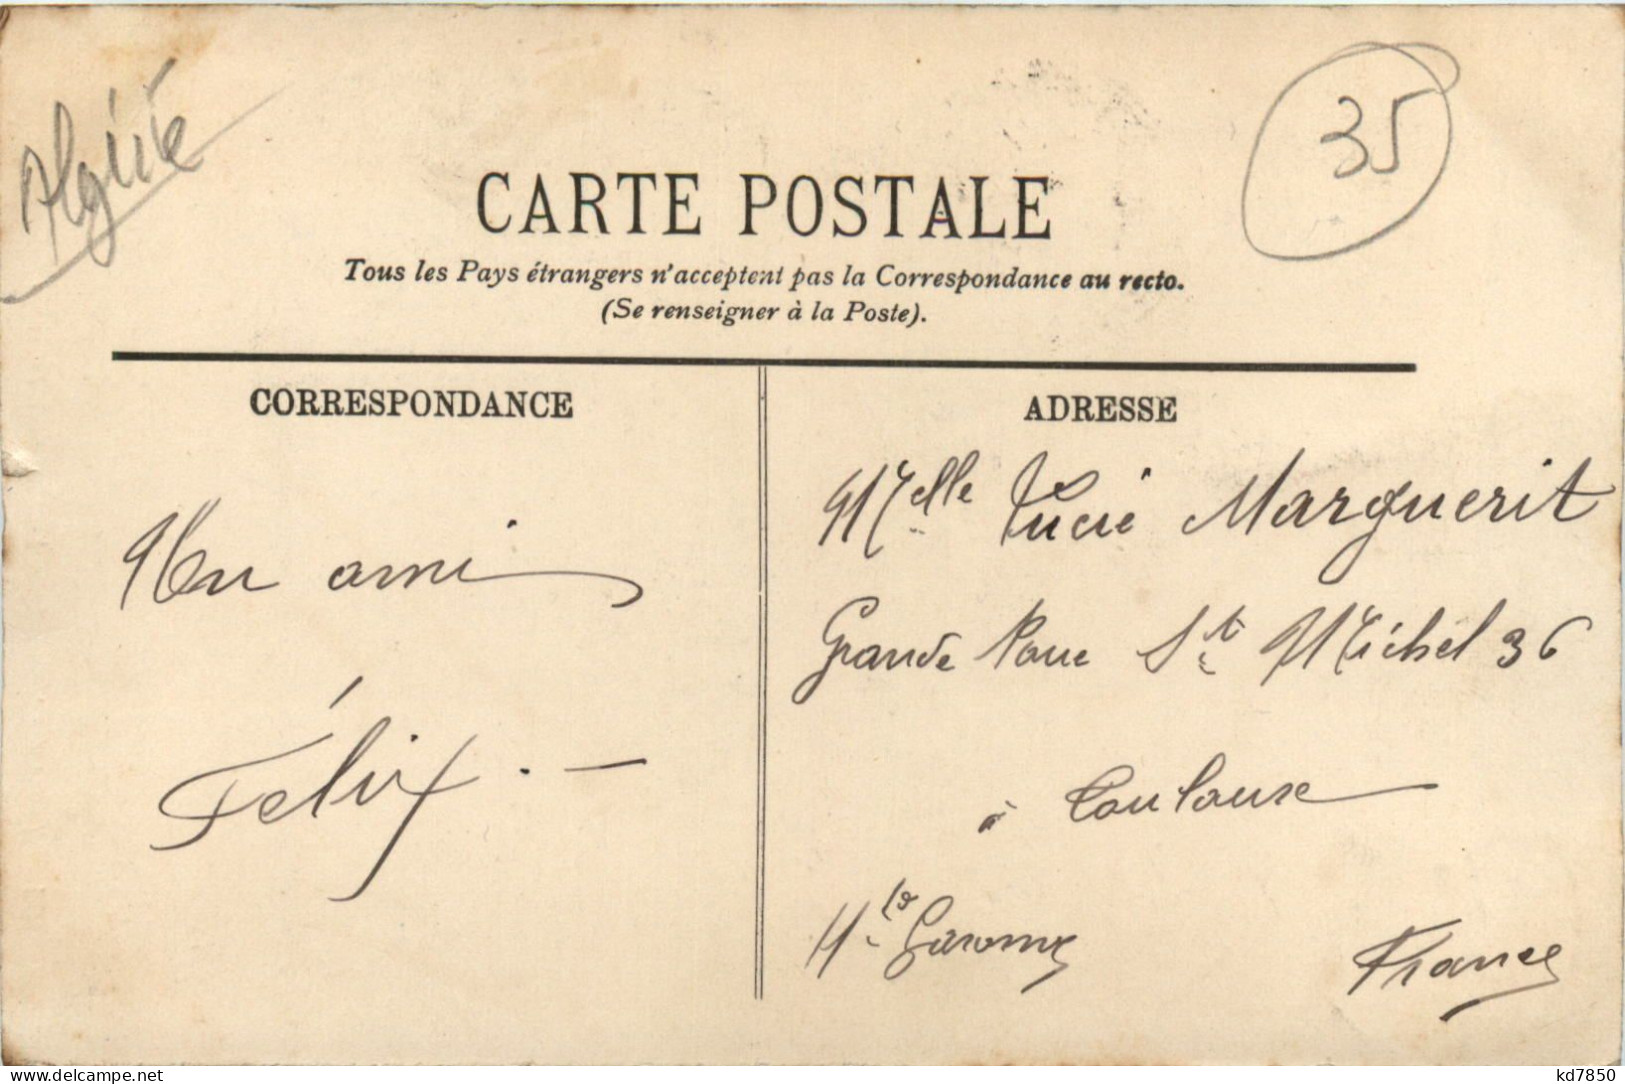 Algérie
35
CARTE POSTALE
Tous les Pays étrangers n'acceptent pas la Correspondance au recto.
(Se renseigner à la Poste).
CORRESPONDANCE
Un ami
Félix. —
ADRESSE
Melle Lucie Marguerit
Grande Rue St Michel 36
à Toulouse
Hte Garonne
France
delcampe.net
kd7850